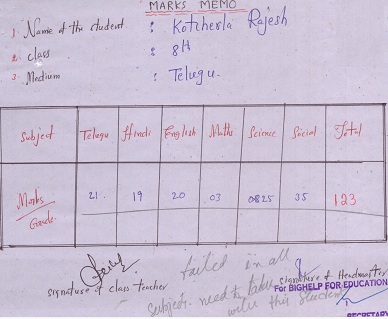 MARKS MEMO
1. Name of the student : Kotcherla Rajesh
2. class : 8th
3. Medium : Telugu.
Subject Telugu Hindi English Maths Science Social Total
Marks 21. 19 20 03 0825 35 123
Grade.
failed in all
signature of class teacher signature of Headmaster
subject. need to take
For BIGHELP FOR EDUCATION
with this student
SECRETARY